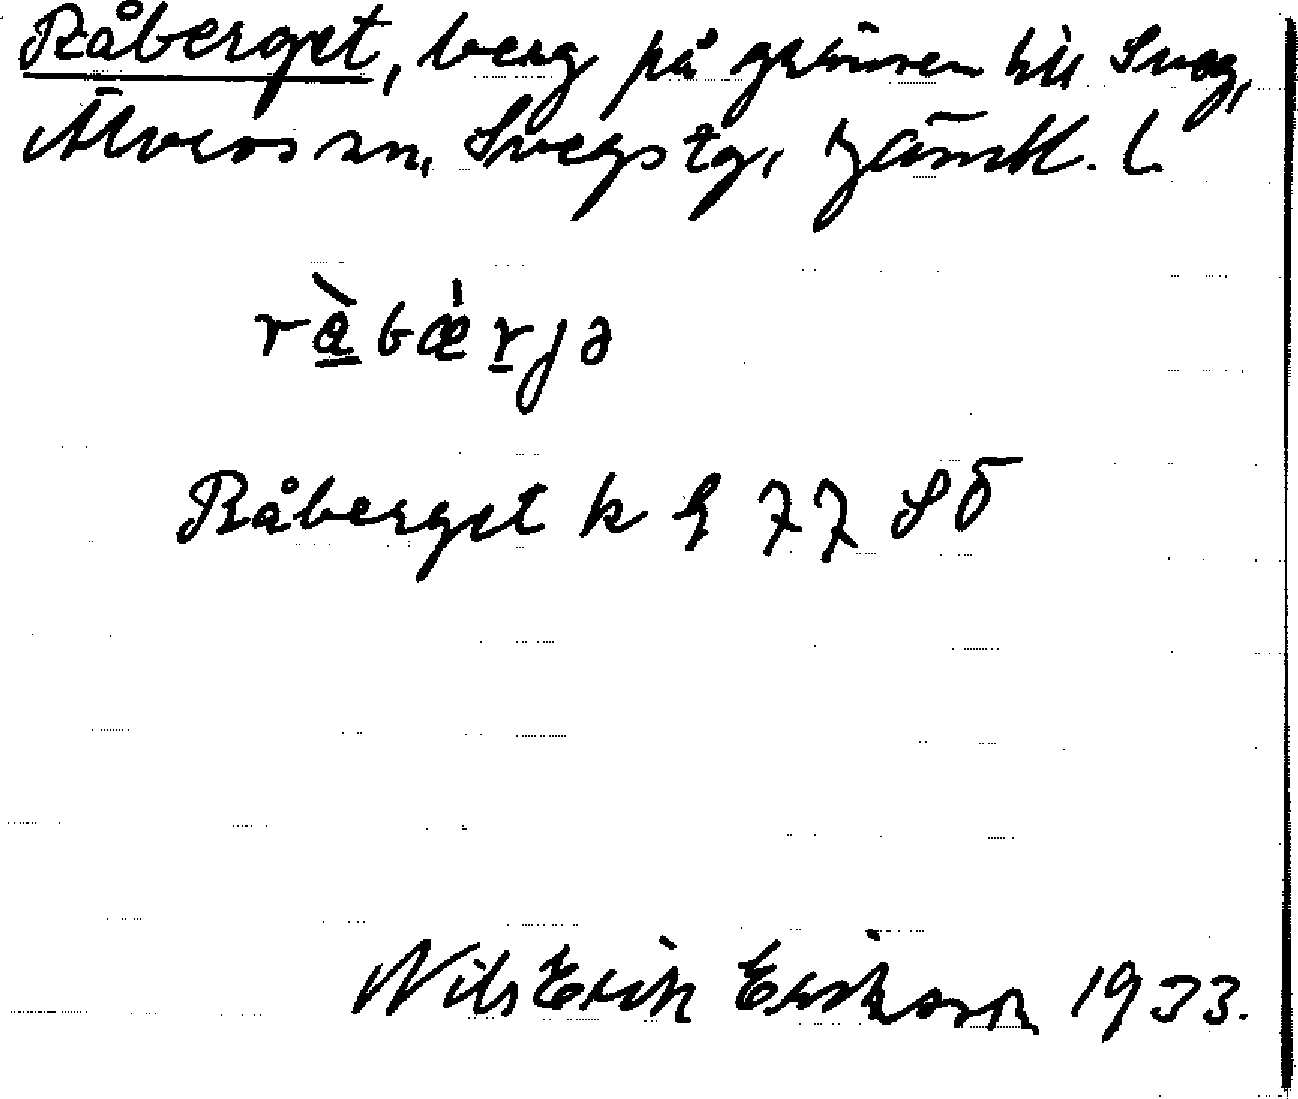 Råberget, berg på gränsen till Sveg,
Älvros sn, Svegs tg, Jämtl. l.
rà̱bæ̍ṟjə
Råberget k g 77 SÖ
Nils Erik Eriksson 1933.